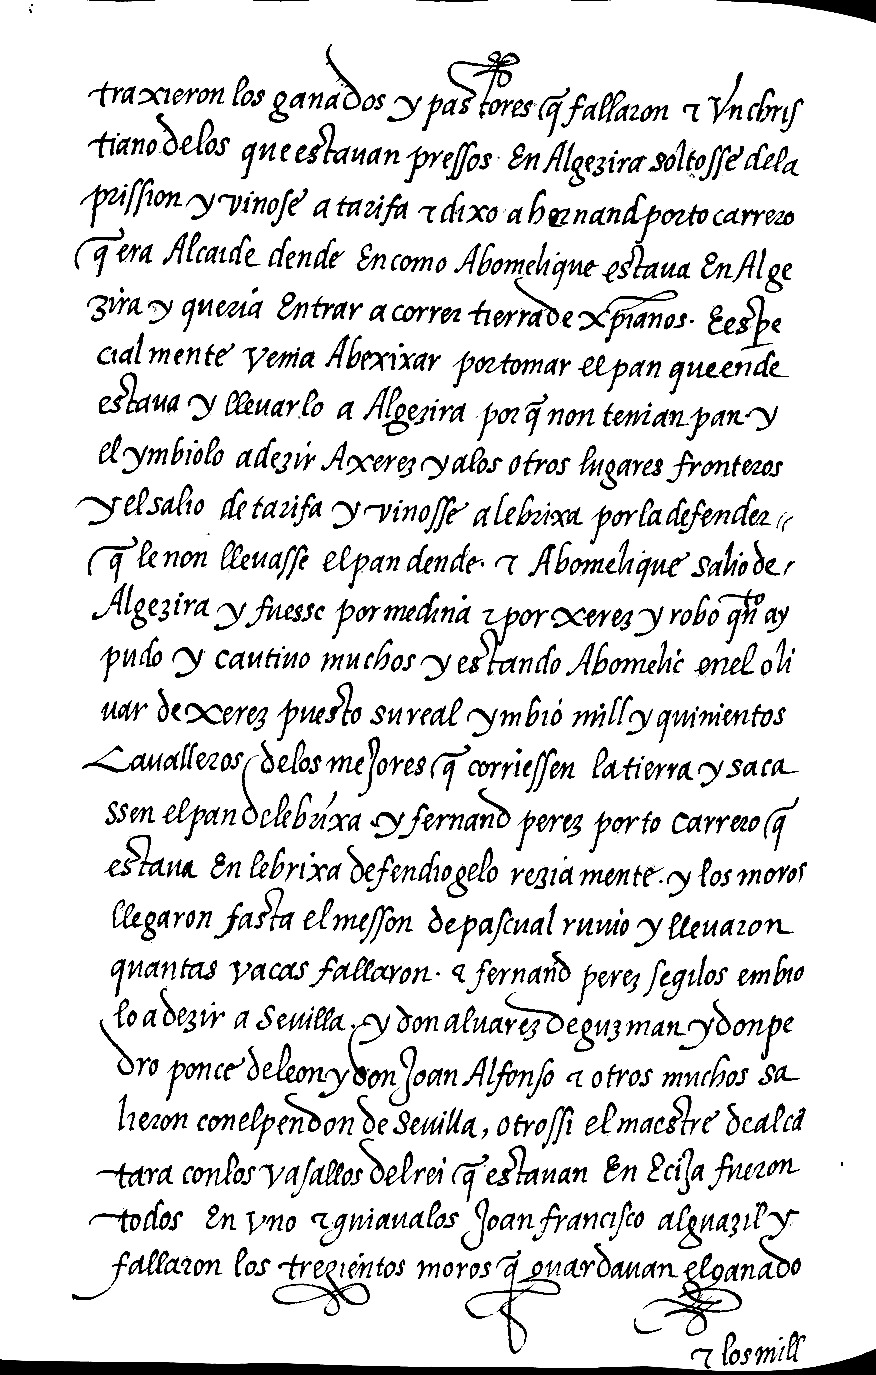 traxieron los ganados y pastores q̃ fallaron τ Vn chris
tiano delos que estauan pressos. En Algezira soltosse dela
prission y vinose a tarifa τ dixo a hernand porto carrero
q̃ era Alcaide dende En como Abomelique estaua En Alge
zira y queria Entrar a correr tierra de xp̃ianos. E espe
cial mente venia Abexixar por tomar el pan que ende
estaua y lleuarlo a Algezira por q̃ non tenian pan y
el ymbiolo a dezir A xerez y alos otros lugares fronteros
y el salio de tarifa y vinosse a lebrixa por la defender
q̃ le non lleuasse el pan dende. τ Abomelique salio de
Algezira y fuesse por medina τ por xerez y robo qñto ay
pudo y cautiuo muchos y estando Abomelic enel oli
uar de xerez puesto su real ymbió mill y quinientos
Caualleros delos mejores q̃ corriessen la tierra y saca
ssen el pan de lebrixa y fernand perez porto carrero q̃
estaua En lebrixa defendiogelo rezia mente. y los moros
llegaron fasta el messon de pascual ruuio y lleuaron
quantas vacas fallaron. τ fernand perez segilos embio
lo a dezir a Seuilla y don aluarez de guzman y don pe
dro ponce de leon y don Joan Alfonso τ otros muchos sa
lieron con el pendon de Seuilla, otrossi el maestre dealcã
tara con los vasallos del rei q̃ estauan En Ecija fueron
todos En vno τ guiaualos Joan francisco alguazil y
fallaron los trezientos moros q̃ guardauan el ganado
τ los mill